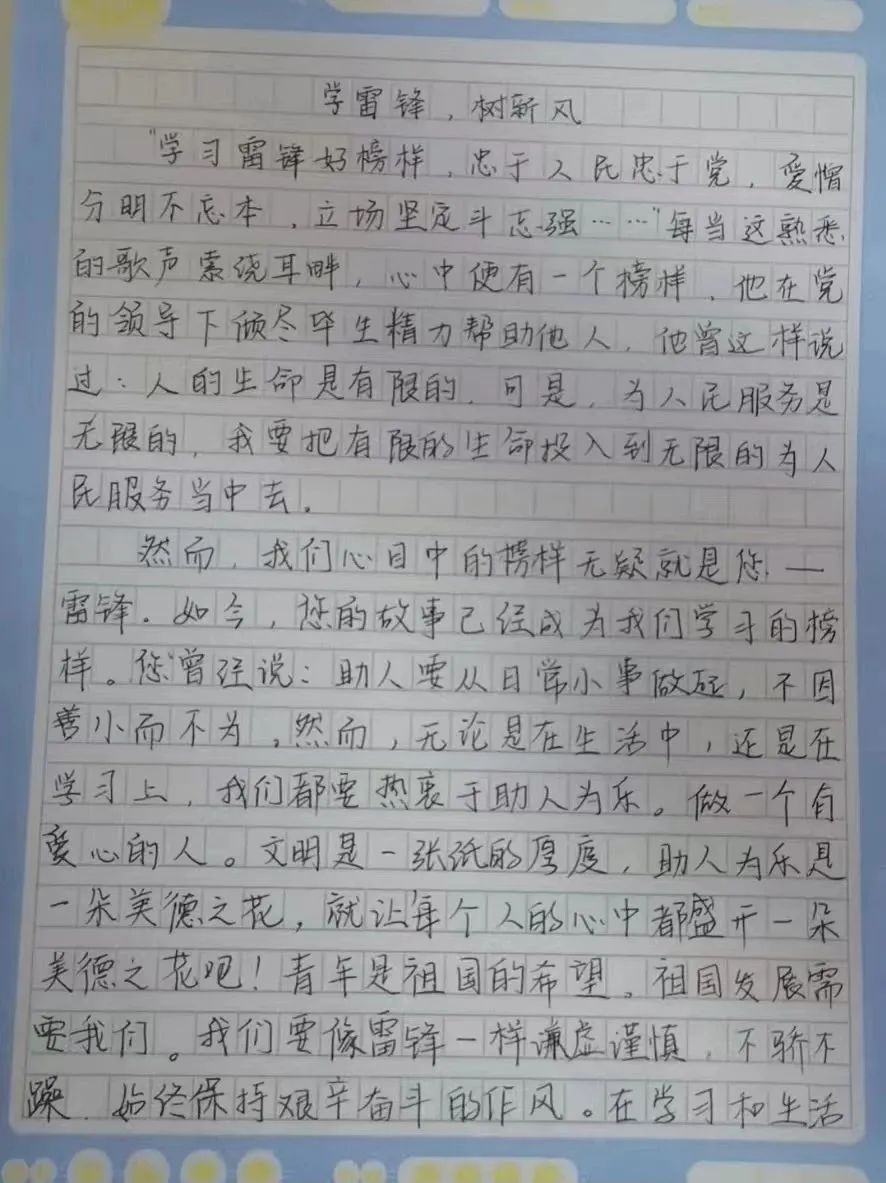 学雷锋，树新风
"学习雷锋好榜样，忠于人民忠于党，爱憎
分明不忘本，立场坚定斗志强……"每当这熟悉
的歌声索绕耳畔，心中便有一个榜样，他在党
的领导下倾尽毕生精力帮助他人，他曾这样说
过：人的生命是有限的，可是，为人民服务是
无限的，我要把有限的生命投入到无限的为人
民服务当中去。
然而，我们心目中的榜样无疑就是您—
雷锋。如今，您的故事已经成为我们学习的榜
样。您曾经说：助人要从日常小事做起，不因
善小而不为，然而，无论是在生活中，还是在
学习上，我们都要热衷于助人为乐。做一个有
爱心的人。文明是一张纸的厚度，助人为乐是
一朵美德之花，就让每个人的心中都盛开一朵
美德之花吧！青年是祖国的希望。祖国发展需
要我们。我们要像雷锋一样谦虚谨慎，不骄不
躁，始终保持艰辛奋斗的作风。在学习和生活